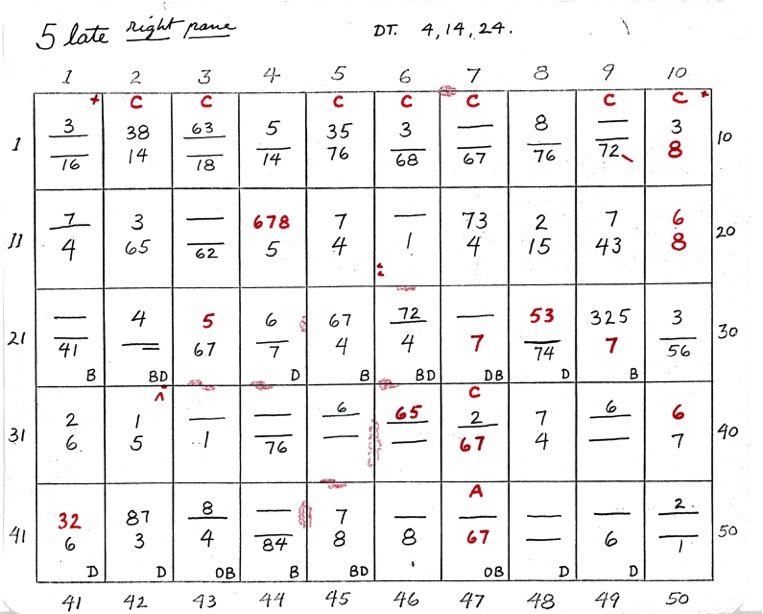 5 late right pane DT. 4, 14, 24.
1 2 3 4 5 6 7 8 9 10
+ C C C C C C C +
3 38 63 5 35 3 — 8 — 3
1 10
16 14 18 14 76 68 67 76 72 8
7 3 — 678 7 — 73 2 7 6
11 20
4 65 62 5 4 1 4 15 43 8
— 4 5 6 67 72 — 53 325 3
21 30
41 — 67 7 4 4 7 74 7 56
B BD D B BD DB D B
^ C
2 1 — — 6 65 2 7 6 6
31 40
6 5 1 76 — — 67 4 — 7
A
32 87 8 — 7 — — — — 2
41 50
6 3 4 84 8 8 67 — 6 1
D D OB B BD OB D D
41 42 43 44 45 46 47 48 49 50